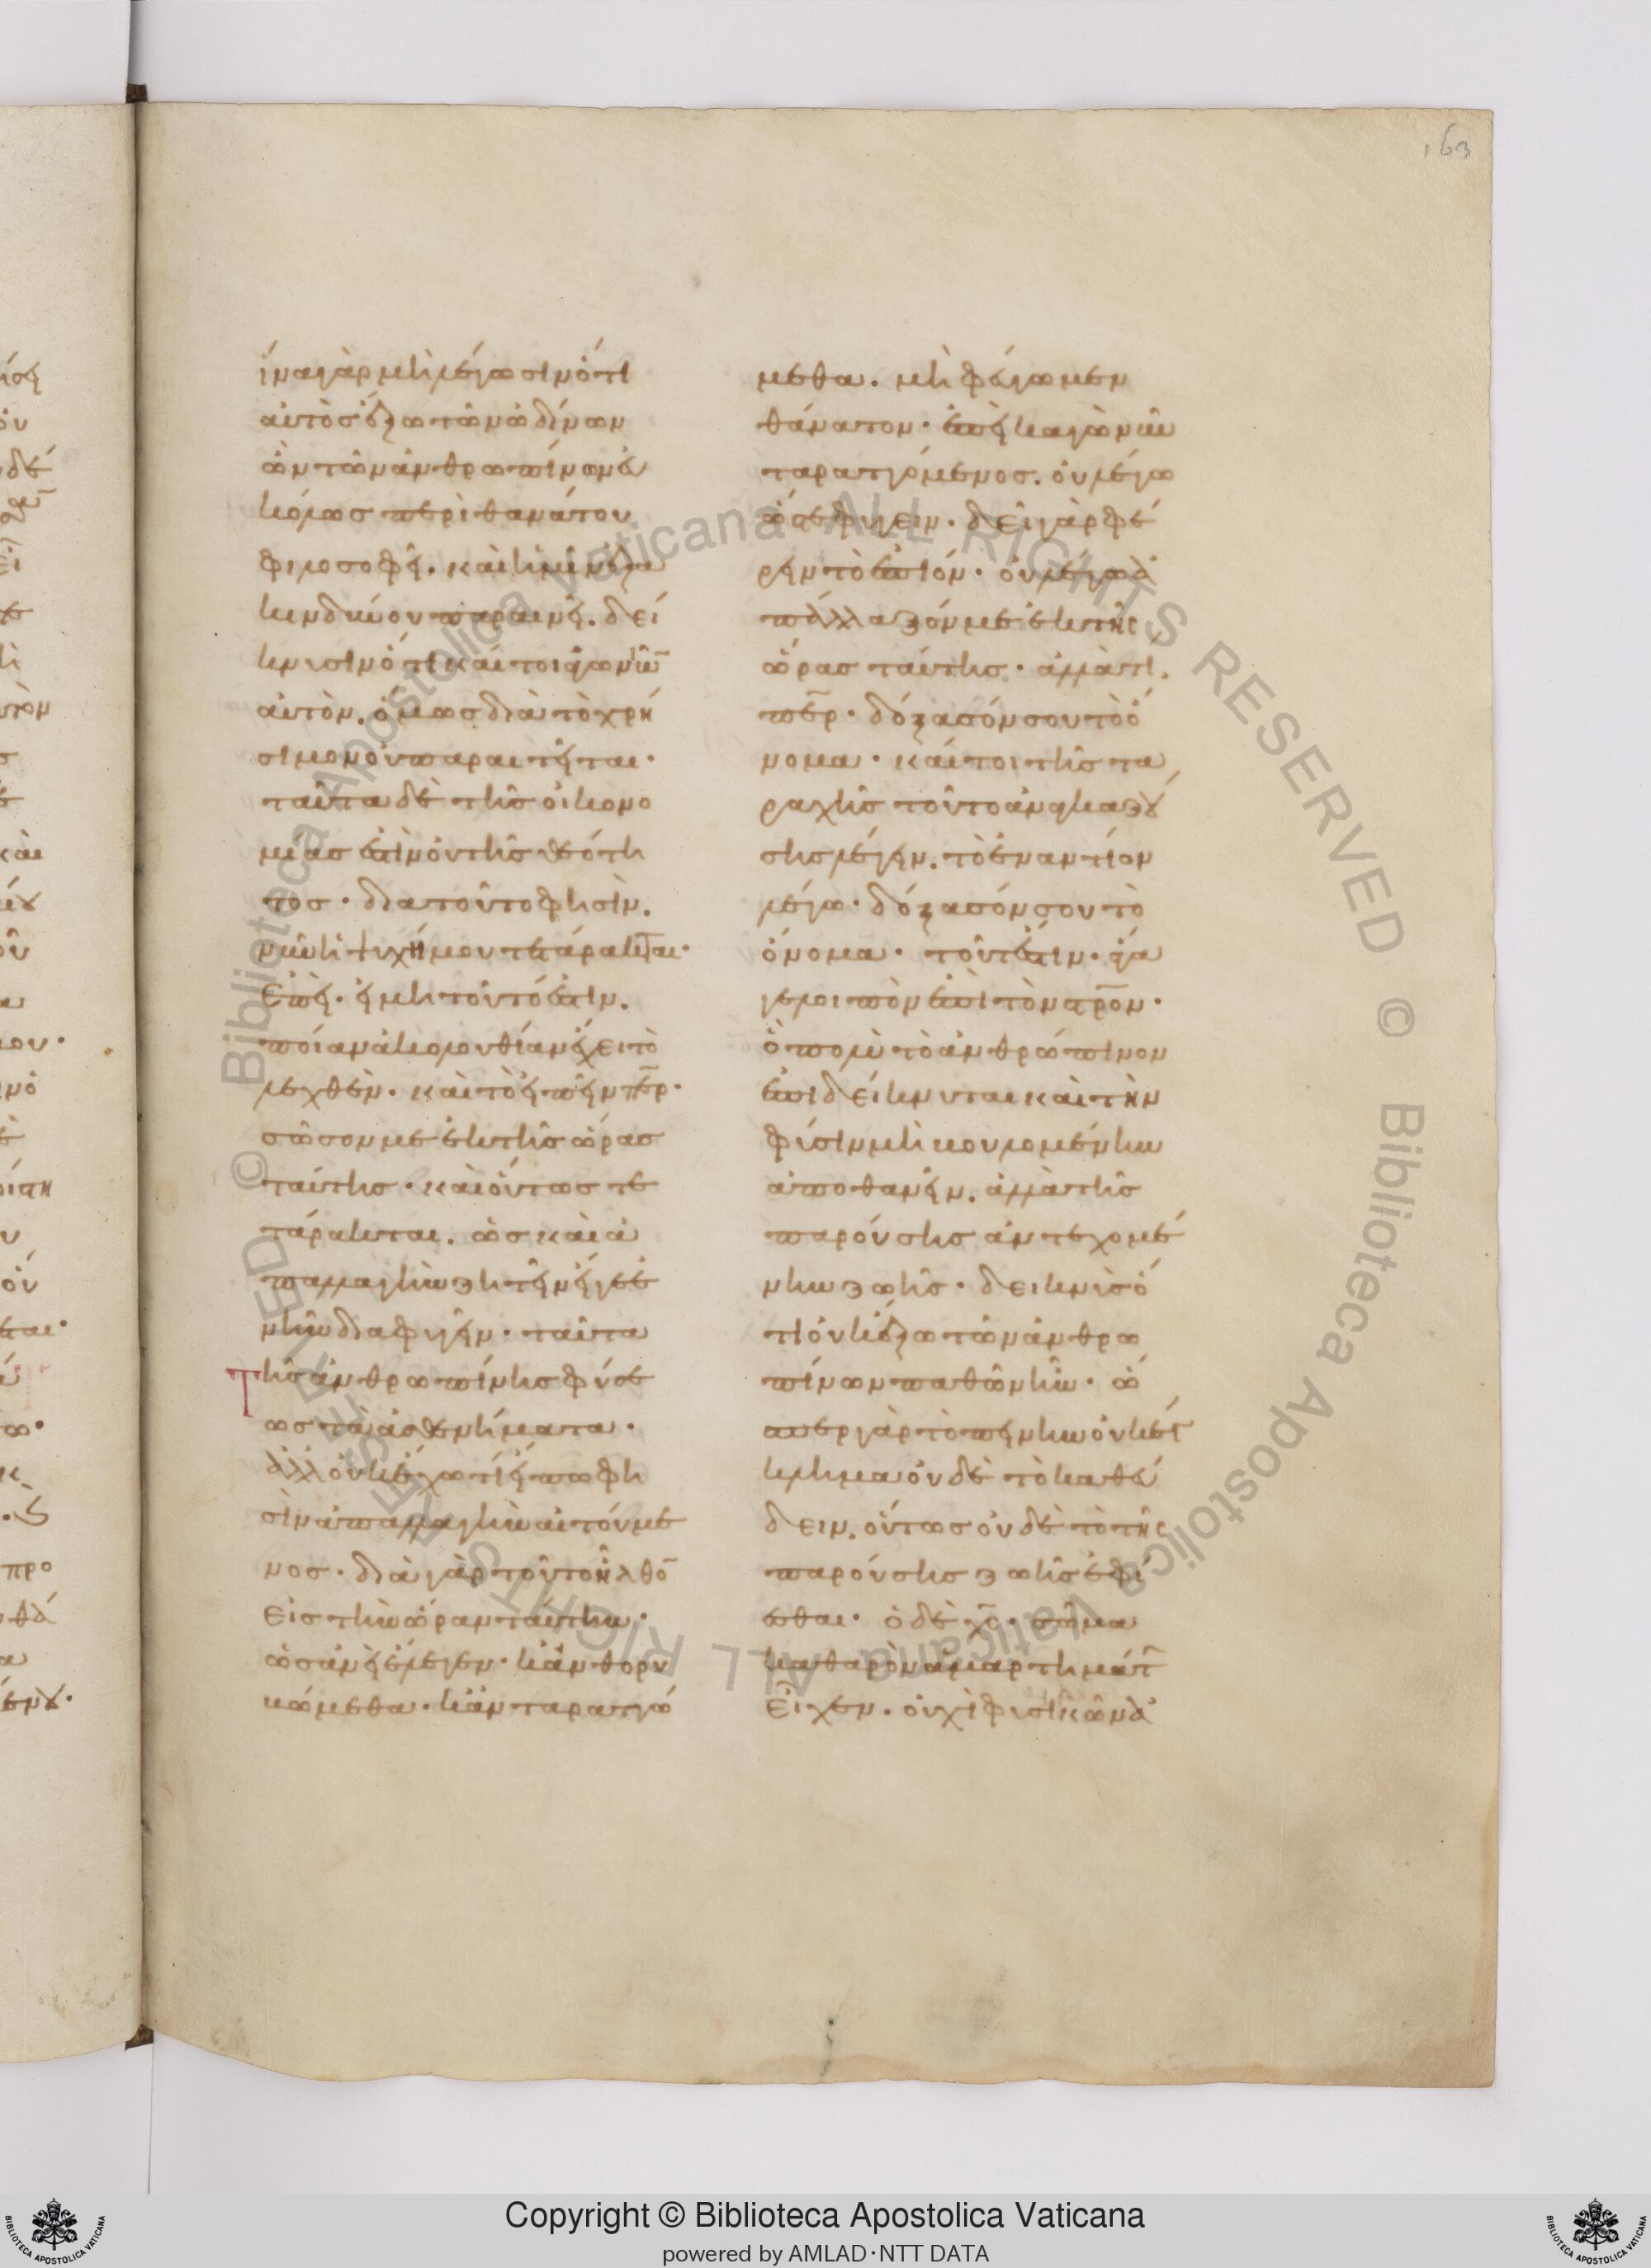 163
ἵνα γὰρ μὴ λέγωσιν ὅτι
αὐτὸς ἔξω τῶν ὠδίνων
ὢν τῶν ἀνθρωπίνων εὐ
κόλως περὶ θανάτου
φιλοσοφεῖ. καὶ ἡμῖν ἔξω
κινδύνου παραινεῖ. δεί
κνυσιν ὅτι καίτοι ἀγωνιῶν
αὐτὸν. ὅμως διὰ τὸ χρή
σιμον οὐ παραιτεῖται·
ταῦτα δὲ τῆς οἰκονο
μίας ἐστὶν οὐ τῆς θεότη
τος· διατοῦτο φησὶν.
νῦν ἡ ψυχή μου τετάρακται·
ἐπεὶ· εἰ μὴ τοῦτό ἐστιν.
ποίαν ἀκολουθίαν ἔχει τὸ
λεχθὲν. καὶ τὸ εἰπεῖν περ·
σῶσον με ἐκ τῆς ὥρας
ταύτης· καὶ οὕτως τε
τάρακται. ὡς καὶ ἀ
παλλαγὴν ζητεῖν εἴγε ἐ
νῆν διαφυγεῖν· ταῦτα
Τῆς ἀνθρωπίνης φύσε
ως τὰ ἀσθενήματα·
ἀλλ οὐκ ἔχω τί εἴπω φη
σὶν ἀπαλλαγὴν αἰτούμε
νος· διὰ γὰρ τοῦτο ἦλθον
εἰς τὴν ὥραν ταύτην·
ὡσανεὶ ἔλεγεν· κἂν θορυ
βώμεθα· κἂν ταραττώ
μεθα. μὴ φεύγωμεν
θάνατον· ἐπεὶ καγὼ νῦν
ταραττόμενος. οὐ λέγω
ὥστε φυγεῖν· δεῖ γὰρ φέ
ρειν τὸ ἐπιόν· οὐ λέγω ἀ
πάλλαξόν με ἐκ τῆς
ὥρας ταύτης· ἀλλὰ τί.
περ· δόξασόν σου τὸ ὄ
νομα· καίτοι τῆς τα
ραχῆς τοῦτο ἀναγκαζού
σης λέγειν. τὸ ἐναντίον
λέγω· δόξασόν σου τὸ
ὄνομα· τοῦτέστιν· ἄγα
γε λοιπὸν ἐπὶ τὸν στρον·
ὃ πολὺ τὸ ἀνθρώπινον
ἐπιδείκνυται καὶ τὴν
φύσιν μὴ βουλομένην
ἀποθανεῖν. ἀλλὰ τῆς
παρούσης ἀντεχομέ
νην ζωῆς· δεικνὺς ὅ
τι οὐκ ἔξω τῶν ἀνθρω
πίνων παθῶν ἦν· ὥ
σπερ γὰρ τὸ πεινῆν οὐκ ἔστ
κλημα οὐδὲ τὸ καθεύ
δειν. οὕτως οὐδὲ τὸ τῆς
παρούσης ζωῆς ἐφί
εσθαι· ὁ δὲ χς· σῶμα
καθαρὸν ἁμαρτημάτ
εἶχεν. οὐχὶ φυσικῶν ἀ